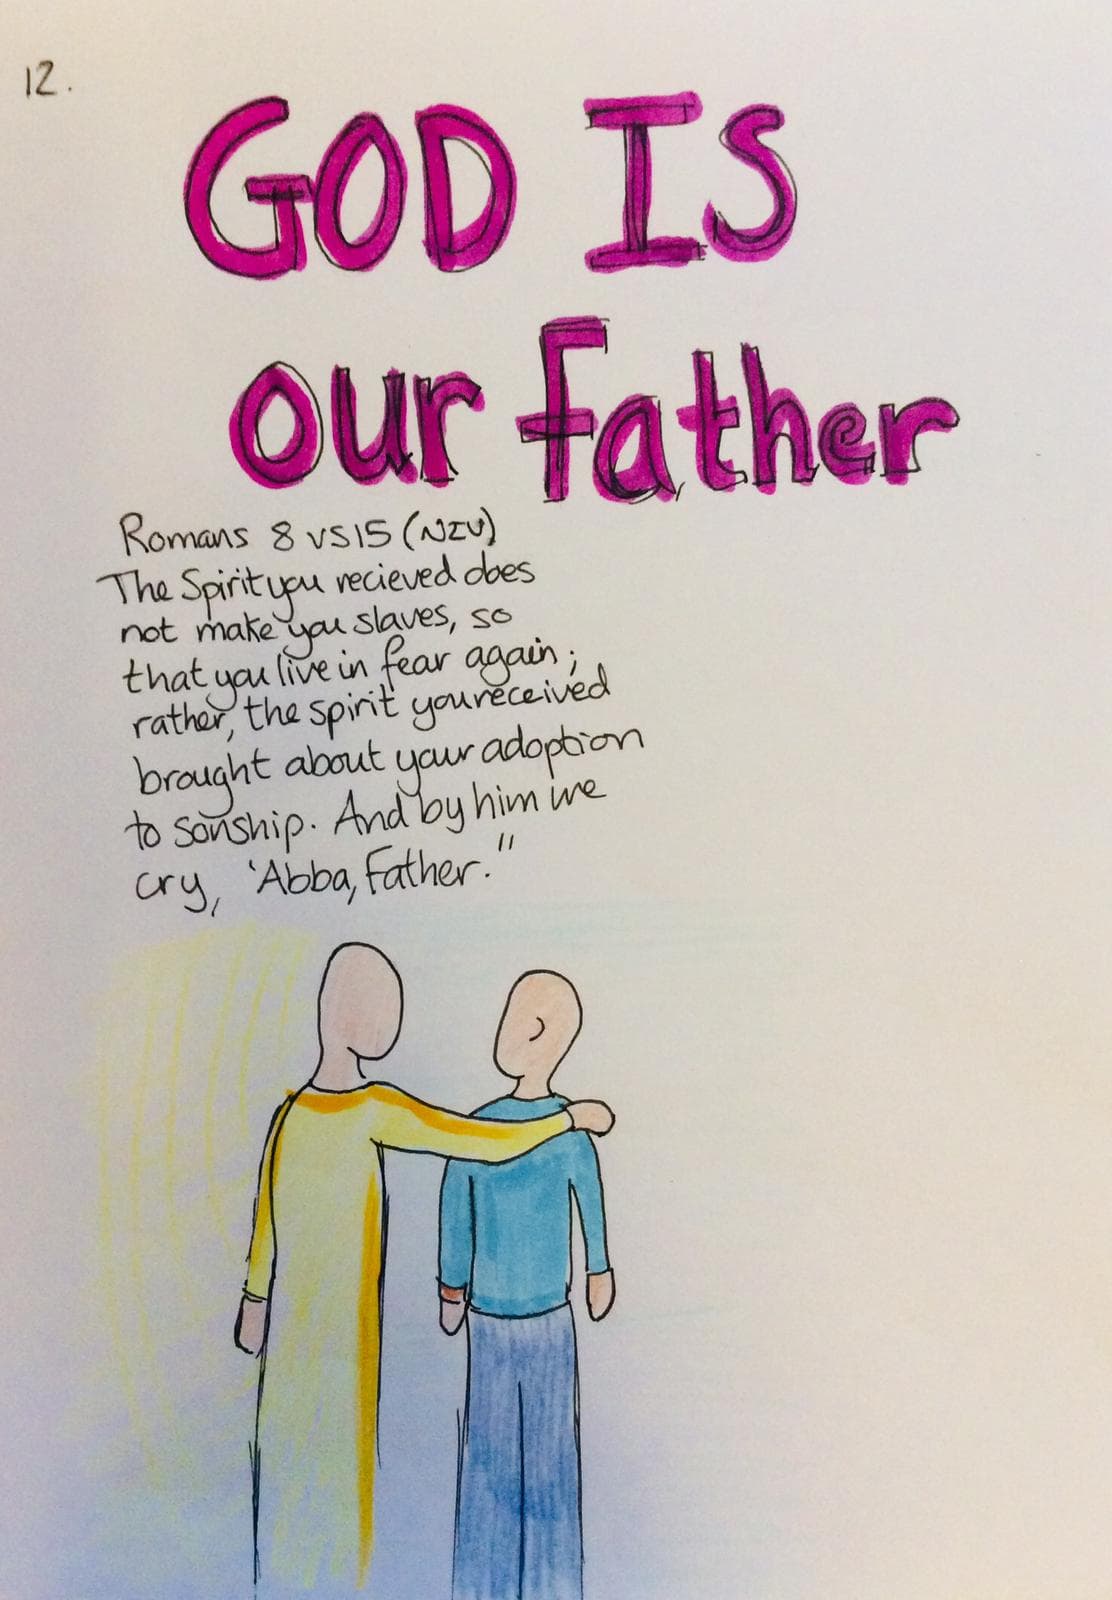 12.
GOD IS
our father
Romans 8 vs 15 (NIV)
The Spirit you recieved does
not make you slaves, so
that you live in fear again;
rather, the spirit you received
brought about your adoption
to sonship. And by him we
cry, 'Abba, Father."